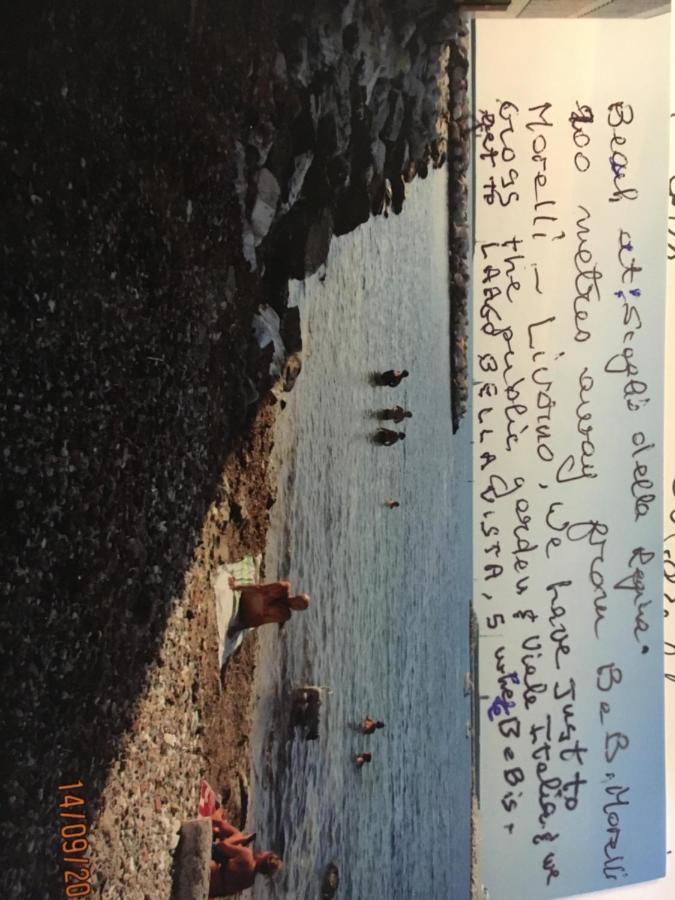 Beach at: Scogli'o della Regina.
200 metres away from B e B. Morelli
Morelli - Livorno, we have Just to
cross the public garden & Viale Italia & we
get to LARGO BELLAVISTA, 5 where B e B is.
14/09/20